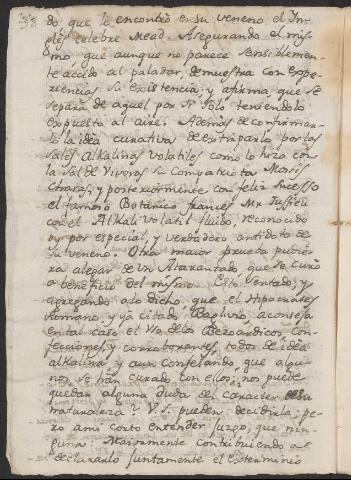 38 do que le encontró en su veneno el In-
glés celebre Mead. Asegurando el mis-
mo, que aunque no parece sensiblemen-
te acido al paladar, demuestra con expe-
riencias su existencia; y afirma, que se
separa de aquel por si solo teniendolo
expuesto al aire. Ademas de confirmar-
lo la idea curativa de extriparlo por las
sales Alkalinas Volatiles como lo hizo con
la sal de Vivoras su Compatriota Mosis
Charas; y posteriormente con feliz sucesso
el famoso Botanico frances Mr. Jussieu
con el Alkali volatil fluido, reconocido
oy por especial, y verdadero antidoto de
su veneno. Otra maior prueba pudie-
ra alegar de un Atarantado, que se curó
a beneficio del mismo. Esto sentado; y
agregando a lo dicho, que el Hipocrates
Romano, y ya citado Baglivio, aconseja
en tal caso el uso de los Bezoardicos con-
fecciones, y corroborantes, todos de idea
alkalina, y aun confesando, que algu-
nos se han curado con ellos; nos puede
quedar alguna duda del caracter de su
naturaleza? V.S. pueden decidirla; pe-
ro a mi corto entender juzgo, que nin-
guna: Maiormente contribuiendo a
declararlo juntamente el Exterminio